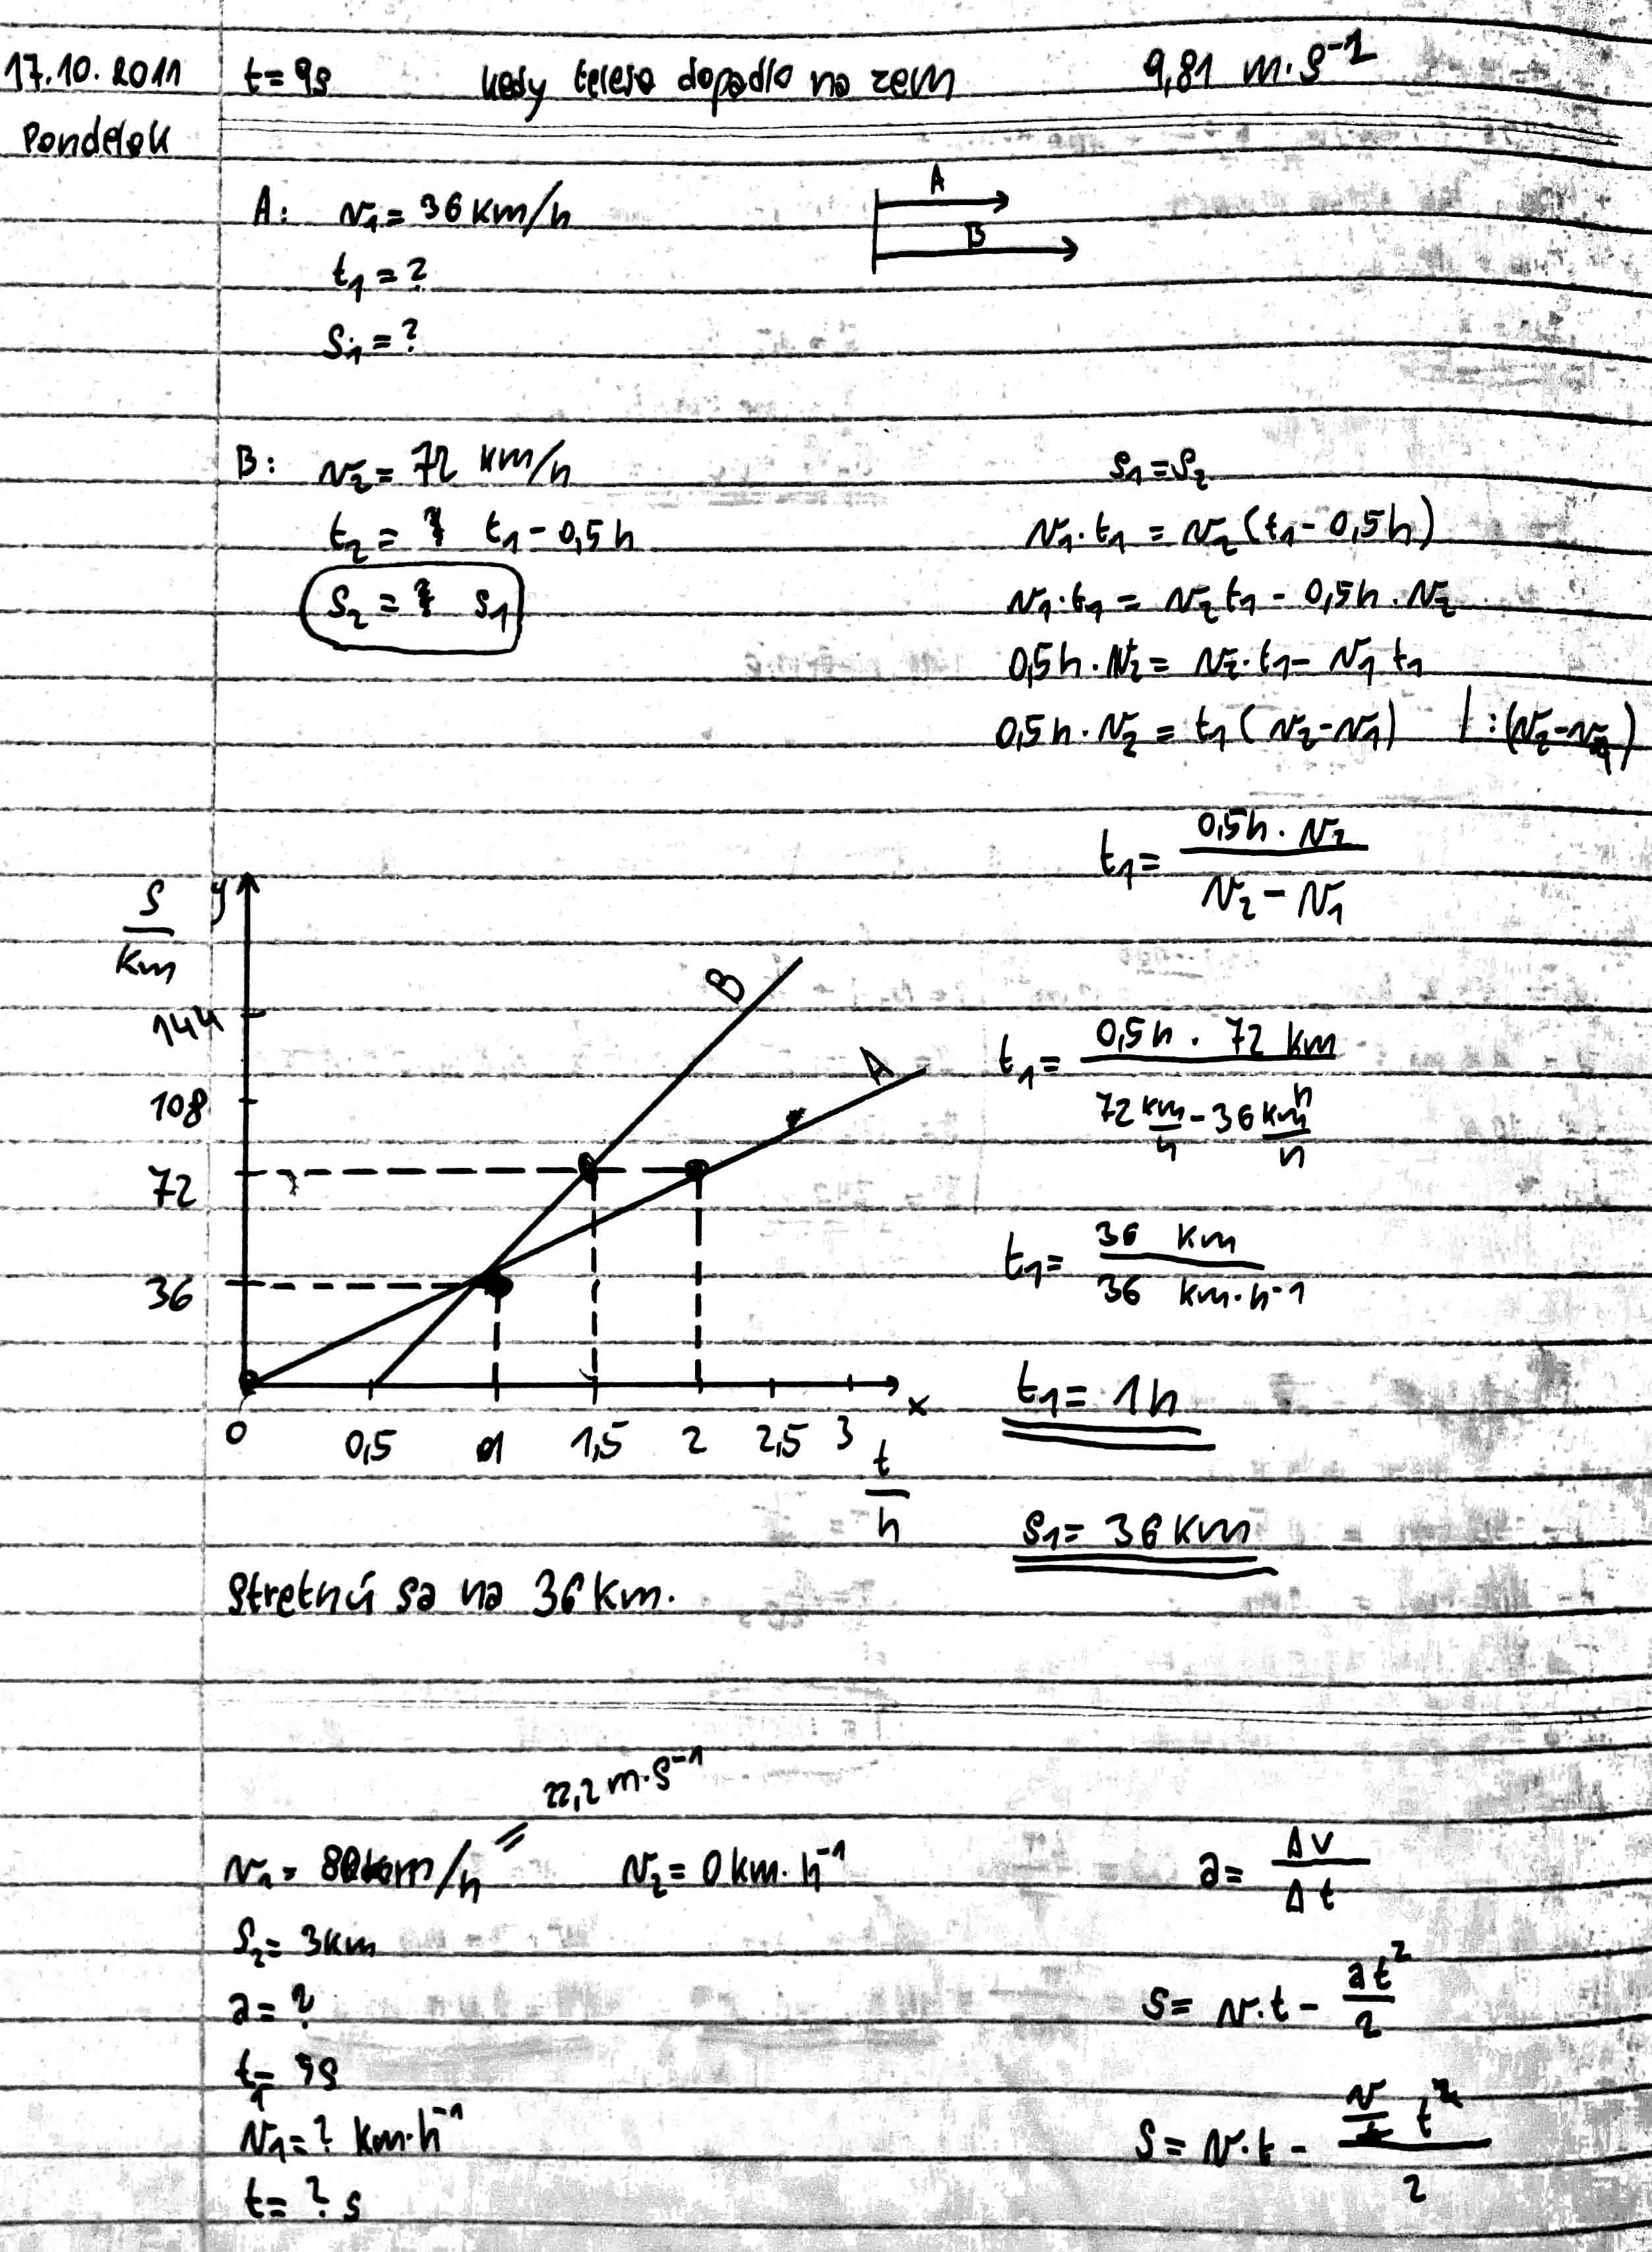 17.10.2011 t=9s kedy teleso dopadlo na zem 9,81 m·s⁻²
Pondelok
A: v₁= 36 km/h
t₁=?
s₁=?
A
B
B: v₂= 72 km/h
t₂= t₁-0,5h
s₂= s₁
s₁=s₂
v₁·t₁ = v₂(t₁-0,5h)
v₁·t₁ = v₂t₁ - 0,5h·v₂
0,5h·v₂ = v₂·t₁ - v₁t₁
0,5h·v₂ = t₁(v₂-v₁) /:(v₂-v₁)
t₁= 0,5h·v₂
v₂-v₁
s
km
y
B
A
144
108
72
36
0 0,5 1 1,5 2 2,5 3
x
t
h
t₁= 0,5h · 72 km
h
72 km/h - 36 km/h
t₁= 36 km
36 km·h⁻¹
t₁= 1h
s₁= 36 km
Stretnú sa na 36 km.
22,2 m·s⁻¹
v₁= 80km/h = v₂= 0 km·h⁻¹
s₂= 3km
a= ?
t₁= 9s
v₁=? km·h⁻¹
t= ? s
a= Δv
Δt
s= v·t - at²
2
s= v·t - v/t t²
2